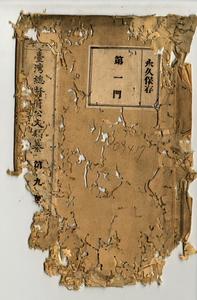 永久保存
第一門
臺灣總督府公文類纂
第九